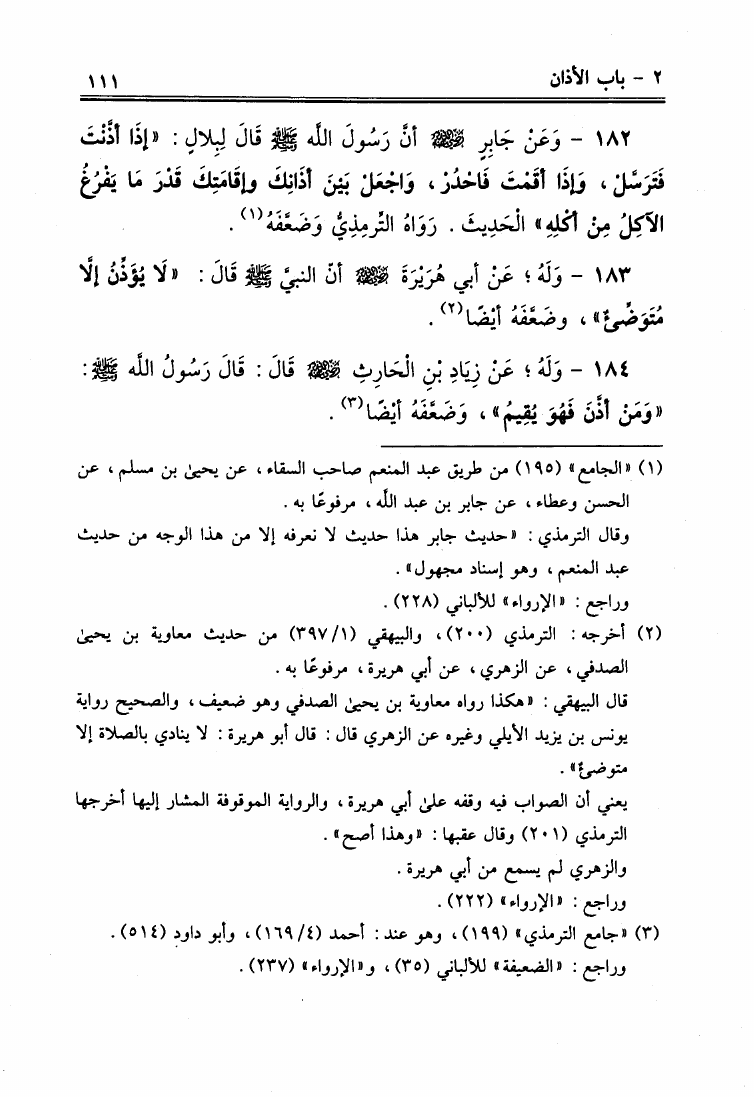 ٢ - باب الأذان ١١١
١٨٢ - وَعَنْ جَابِرٍ ﷺ أَنَّ رَسُولَ اللَّه ﷺ قَالَ لِبِلَالٍ : «إِذَا أَذَّنْتَ
فَتَرَسَّلْ ، وَإِذَا أَقَمْتَ فَاحْدُرْ ، وَاجْعَلْ بَيْنَ أَذَانِكَ وإِقَامَتِكَ قَدْرَ مَا يَفْرُغُ
الآكِلُ مِنْ أَكْلِهِ» الْحَدِيثَ . رَوَاهُ التِّرمِذِيُّ وَضَعَّفَهُ(١) .
١٨٣ - وَلَهُ ؛ عَنْ أبي هُرَيْرَةَ رضي الله عنه أنّ النبيَّ ﷺ قَالَ : «لَا يُؤَذِّنُ إلَّا
مُتَوَضِّئٌ» ، وضَعَّفَهُ أيْضًا(٢) .
١٨٤ - وَلَهُ ؛ عَنْ زِيَادِ بْنِ الْحَارِثِ رضي الله عنه قَالَ : قَالَ رَسُولُ اللَّه ﷺ :
«وَمَنْ أَذَّنَ فَهُوَ يُقِيمُ» ، وَضَعَّفَهُ أيْضًا(٣) .
(١) «الجامع» (١٩٥) من طريق عبد المنعم صاحب السقاء ، عن يحيىٰ بن مسلم ، عن
الحسن وعطاء ، عن جابر بن عبد اللَّه ، مرفوعًا به .
وقال الترمذي : «حديث جابر هذا حديث لا نعرفه إلا من هذا الوجه من حديث
عبد المنعم ، وهو إسناد مجهول» .
وراجع : «الإرواء» للألباني (٢٢٨) .
(٢) أخرجه : الترمذي (٢٠٠) ، والبيهقي (٣٩٧/١) من حديث معاوية بن يحيىٰ
الصدفي ، عن الزهري ، عن أبي هريرة ، مرفوعًا به .
قال البيهقي : «هكذا رواه معاوية بن يحيىٰ الصدفي وهو ضعيف ، والصحيح رواية
يونس بن يزيد الأيلي وغيره عن الزهري قال : قال أبو هريرة : لا ينادي بالصلاة إلا
متوضئٌ» .
يعني أن الصواب فيه وقفه علىٰ أبي هريرة ، والرواية الموقوفة المشار إليها أخرجها
الترمذي (٢٠١) وقال عقبها : «وهذا أصح» .
والزهري لم يسمع من أبي هريرة .
وراجع : «الإرواء» (٢٢٢) .
(٣) «جامع الترمذي» (١٩٩) ، وهو عند : أحمد (١٦٩/٤) ، وأبو داود (٥١٤) .
وراجع : «الضعيفة» للألباني (٣٥) ، و«الإرواء» (٢٣٧) .